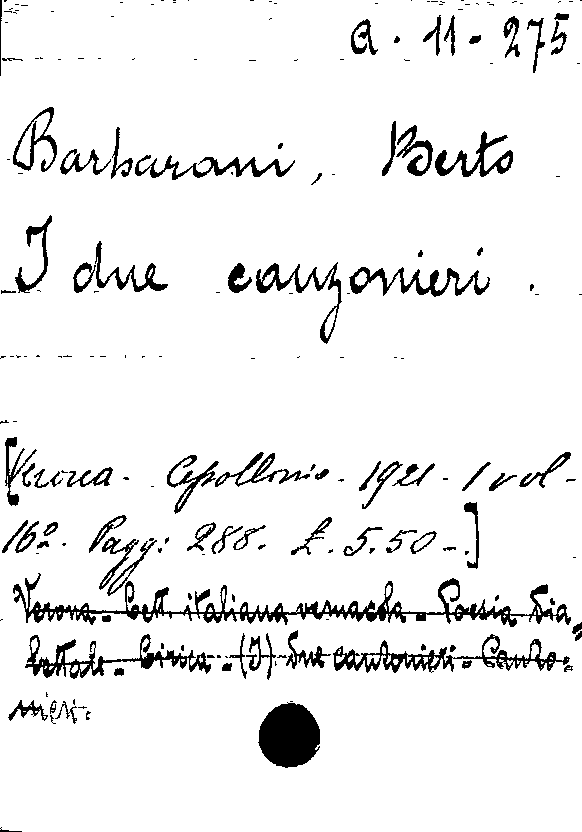 a. 11 - 275
Barbarani, Berto
I due canzonieri.
[Verona. Apollonio. 1921. 1 vol.
16º. Pagg: 288. £. 5.50-.]
Verona - Lett. italiana vernacola - Poesia dia-
lettale - Lirica - (I) due canzonieri - Canzo-
nieri.